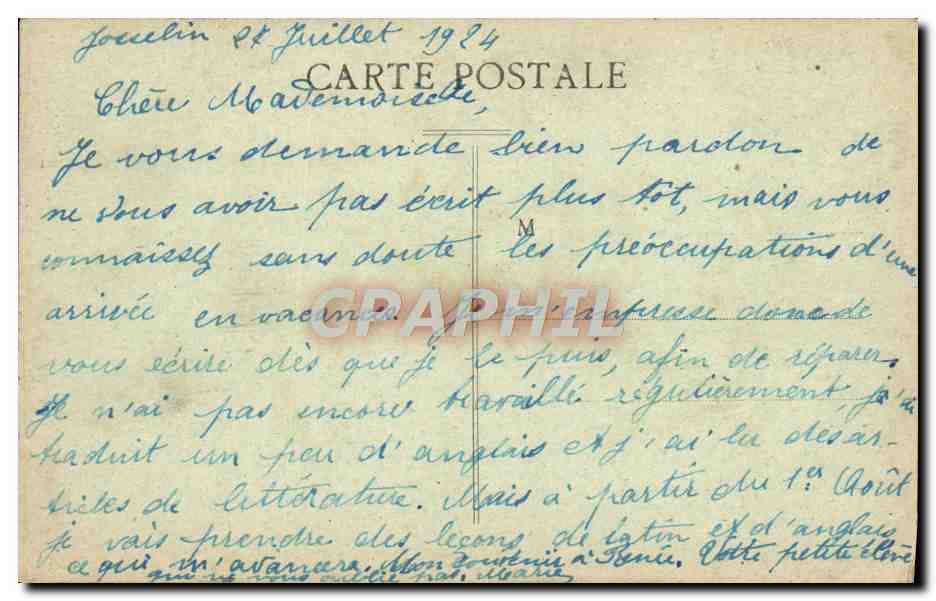 Josselin 27 Juillet 1924
CARTE POSTALE
Chère Mademoiselle,
Je vous demande bien pardon de
ne vous avoir pas écrit plus tot, mais vous
M
connaissez sans doute les préoccupations d'une
arrivée en vacances. Je m'empresse donc de
CPAPHIL
vous écrire dès que je le puis, afin de réparer.
Je n'ai pas encore travaillé régulièrement, j'ai
traduit un peu d'anglais et j'ai lu des ar-
ticles de littérature. Mais à partir du 1er Août
je vais prendre des leçons de latin et d'anglais
ce qui m'avancera. Mon souvenir à Renée. Votre petite élève
qui ne vous oublie pas. Marie